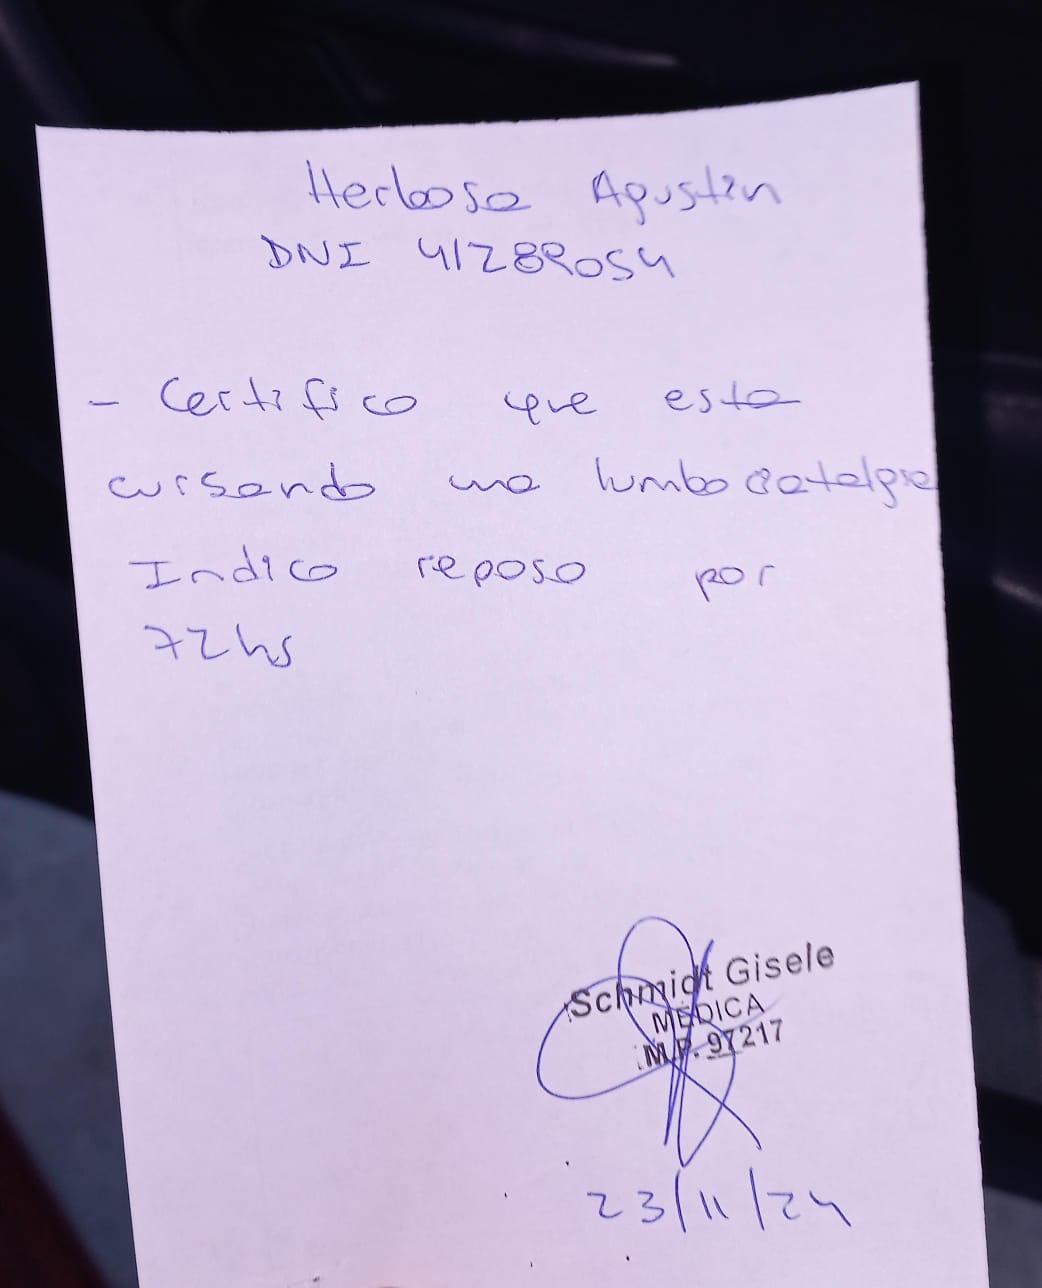 Herbosa Agustin
DNI 41289054
- Certifico que esta
cursando una lumbociatalgia
Indico reposo por
72hs
Schmidt Gisele
MEDICA
M.P. 97217
23/11/24